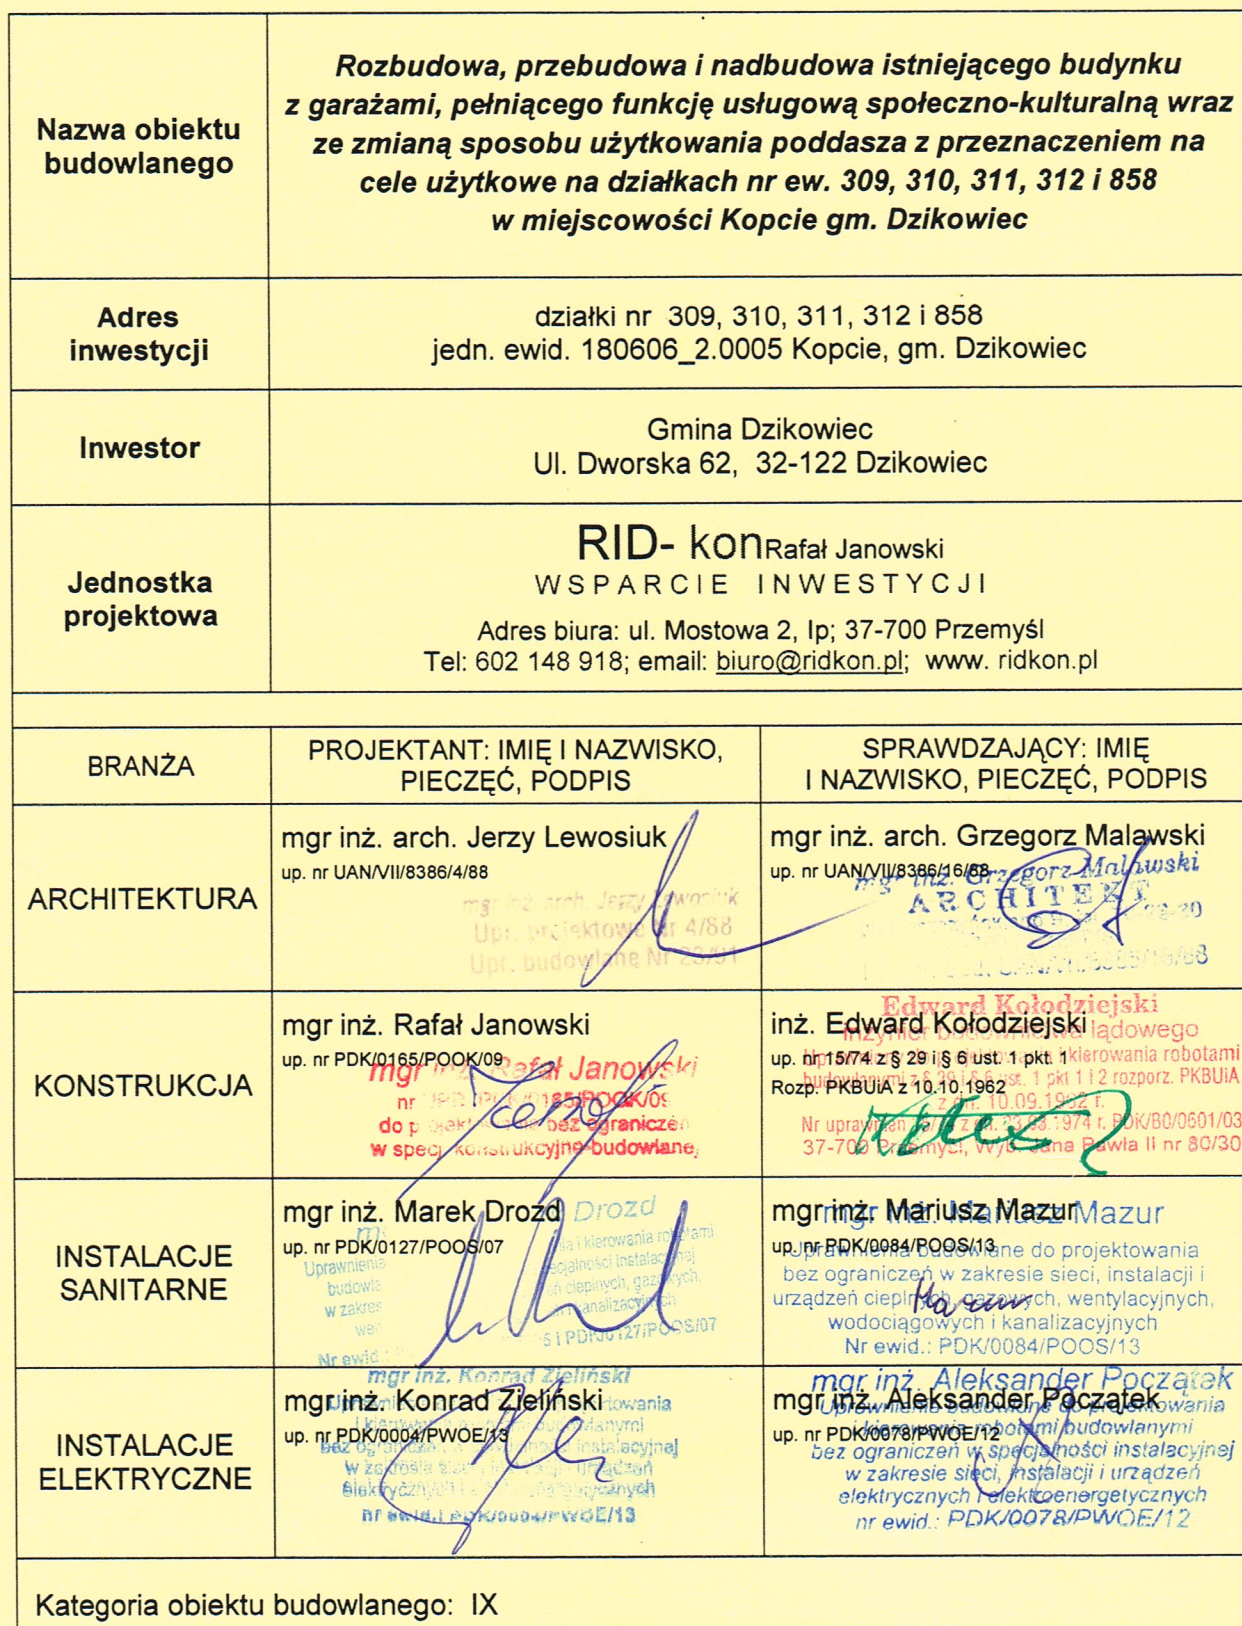 Nazwa obiektu
budowlanego
Rozbudowa, przebudowa i nadbudowa istniejącego budynku
z garażami, pełniącego funkcję usługową społeczno-kulturalną wraz
ze zmianą sposobu użytkowania poddasza z przeznaczeniem na
cele użytkowe na działkach nr ew. 309, 310, 311, 312 i 858
w miejscowości Kopcie gm. Dzikowiec
Adres
inwestycji
działki nr 309, 310, 311, 312 i 858
jedn. ewid. 180606_2.0005 Kopcie, gm. Dzikowiec
Inwestor
Gmina Dzikowiec
Ul. Dworska 62, 32-122 Dzikowiec
Jednostka
projektowa
RID- kon Rafał Janowski
WSPARCIE INWESTYCJI
Adres biura: ul. Mostowa 2, Ip; 37-700 Przemyśl
Tel: 602 148 918; email: biuro@ridkon.pl; www. ridkon.pl
BRANŻA
PROJEKTANT: IMIĘ I NAZWISKO,
PIECZĘĆ, PODPIS
SPRAWDZAJĄCY: IMIĘ
I NAZWISKO, PIECZĘĆ, PODPIS
ARCHITEKTURA
mgr inż. arch. Jerzy Lewosiuk
up. nr UAN/VII/8386/4/88
mgr inż. arch. Jerzy Lewosiuk
Upr. projektowe Nr 4/88
Upr. budowlane Nr 23/91
mgr inż. arch. Grzegorz Malawski
up. nr UAN/VII/8386/16/88
mgr inż. Grzegorz Malawski
ARCHITEKT
KONSTRUKCJA
mgr inż. Rafał Janowski
up. nr PDK/0165/POOK/09
mgr inż. Rafał Janowski
nr PDK/0165/POOK/09
do projektowania bez ograniczeń
w specj. konstrukcyjno-budowlanej
inż. Edward Kołodziejski
up. nr 15/74 z § 29 i § 6 ust. 1 pkt. 1
Rozp. PKBUiA z 10.10.1962
Edward Kołodziejski
inżynier budownictwa lądowego
kierowania robotami
budowlanymi z § 29 i § 6 ust. 1 pkt 1 i 2 rozporz. PKBUiA
z dn. 10.09.1962 r.
Nr uprawnień 15/74 z dn. 23.03.1974 r. PDK/BO/0601/03
37-700 Przemyśl, Wyb. Jana Pawła II nr 80/30
INSTALACJE
SANITARNE
mgr inż. Marek Drozd
up. nr PDK/0127/POOS/07
Drozd
Uprawnienia i kierowania robotami
specjalności instalacyjnej
w zakresie cieplnych, gazowych,
i kanalizacyjnych
Nr ewid.: PDK/0127/POOS/07
mgr inż. Mariusz Mazur
up. nr PDK/0084/POOS/13
mgr inż. Mariusz Mazur
Uprawnienia budowlane do projektowania
bez ograniczeń w zakresie sieci, instalacji i
urządzeń cieplnych, gazowych, wentylacyjnych,
wodociągowych i kanalizacyjnych
Nr ewid.: PDK/0084/POOS/13
Mazur
INSTALACJE
ELEKTRYCZNE
mgr inż. Konrad Zieliński
up. nr PDK/0004/PWOE/13
mgr inż. Konrad Zieliński
Uprawnienia budowlane do projektowania
i kierowania robotami budowlanymi
bez ograniczeń w specjalności instalacyjnej
w zakresie sieci, instalacji i urządzeń
elektrycznych i elektroenergetycznych
nr ewid.: PDK/0004/PWOE/13
mgr inż. Aleksander Początek
up. nr PDK/0078/PWOE/12
mgr inż. Aleksander Początek
Uprawnienia budowlane do projektowania
i kierowania robotami budowlanymi
bez ograniczeń w specjalności instalacyjnej
w zakresie sieci, instalacji i urządzeń
elektrycznych i elektroenergetycznych
nr ewid.: PDK/0078/PWOE/12
Kategoria obiektu budowlanego: IX